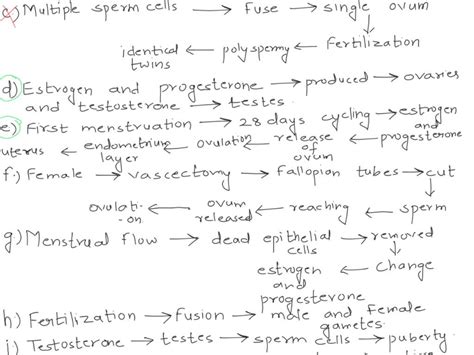 c) Multiple sperm cells → Fuse → single ovum
identical twins ← polyspermy ← Fertilization
d) Estrogen and progesterone → produced → ovaries
and testosterone → testes.
e) First menstruation → 28 days cycling → estrogen and progesterone
uterus ← endometrium layer ← ovulation ← release of ovum ←
f.) Female → vascectomy → Fallopian tubes → cut
ovulati-on ← ovum released ← reaching ← sperm
g) Menstrual flow → dead epithelial cells → removed
estrogen and progesterone ← change
h) Fertilization → fusion → male and Female gametes.
i) Testosterone → testes → sperm cells → puberty